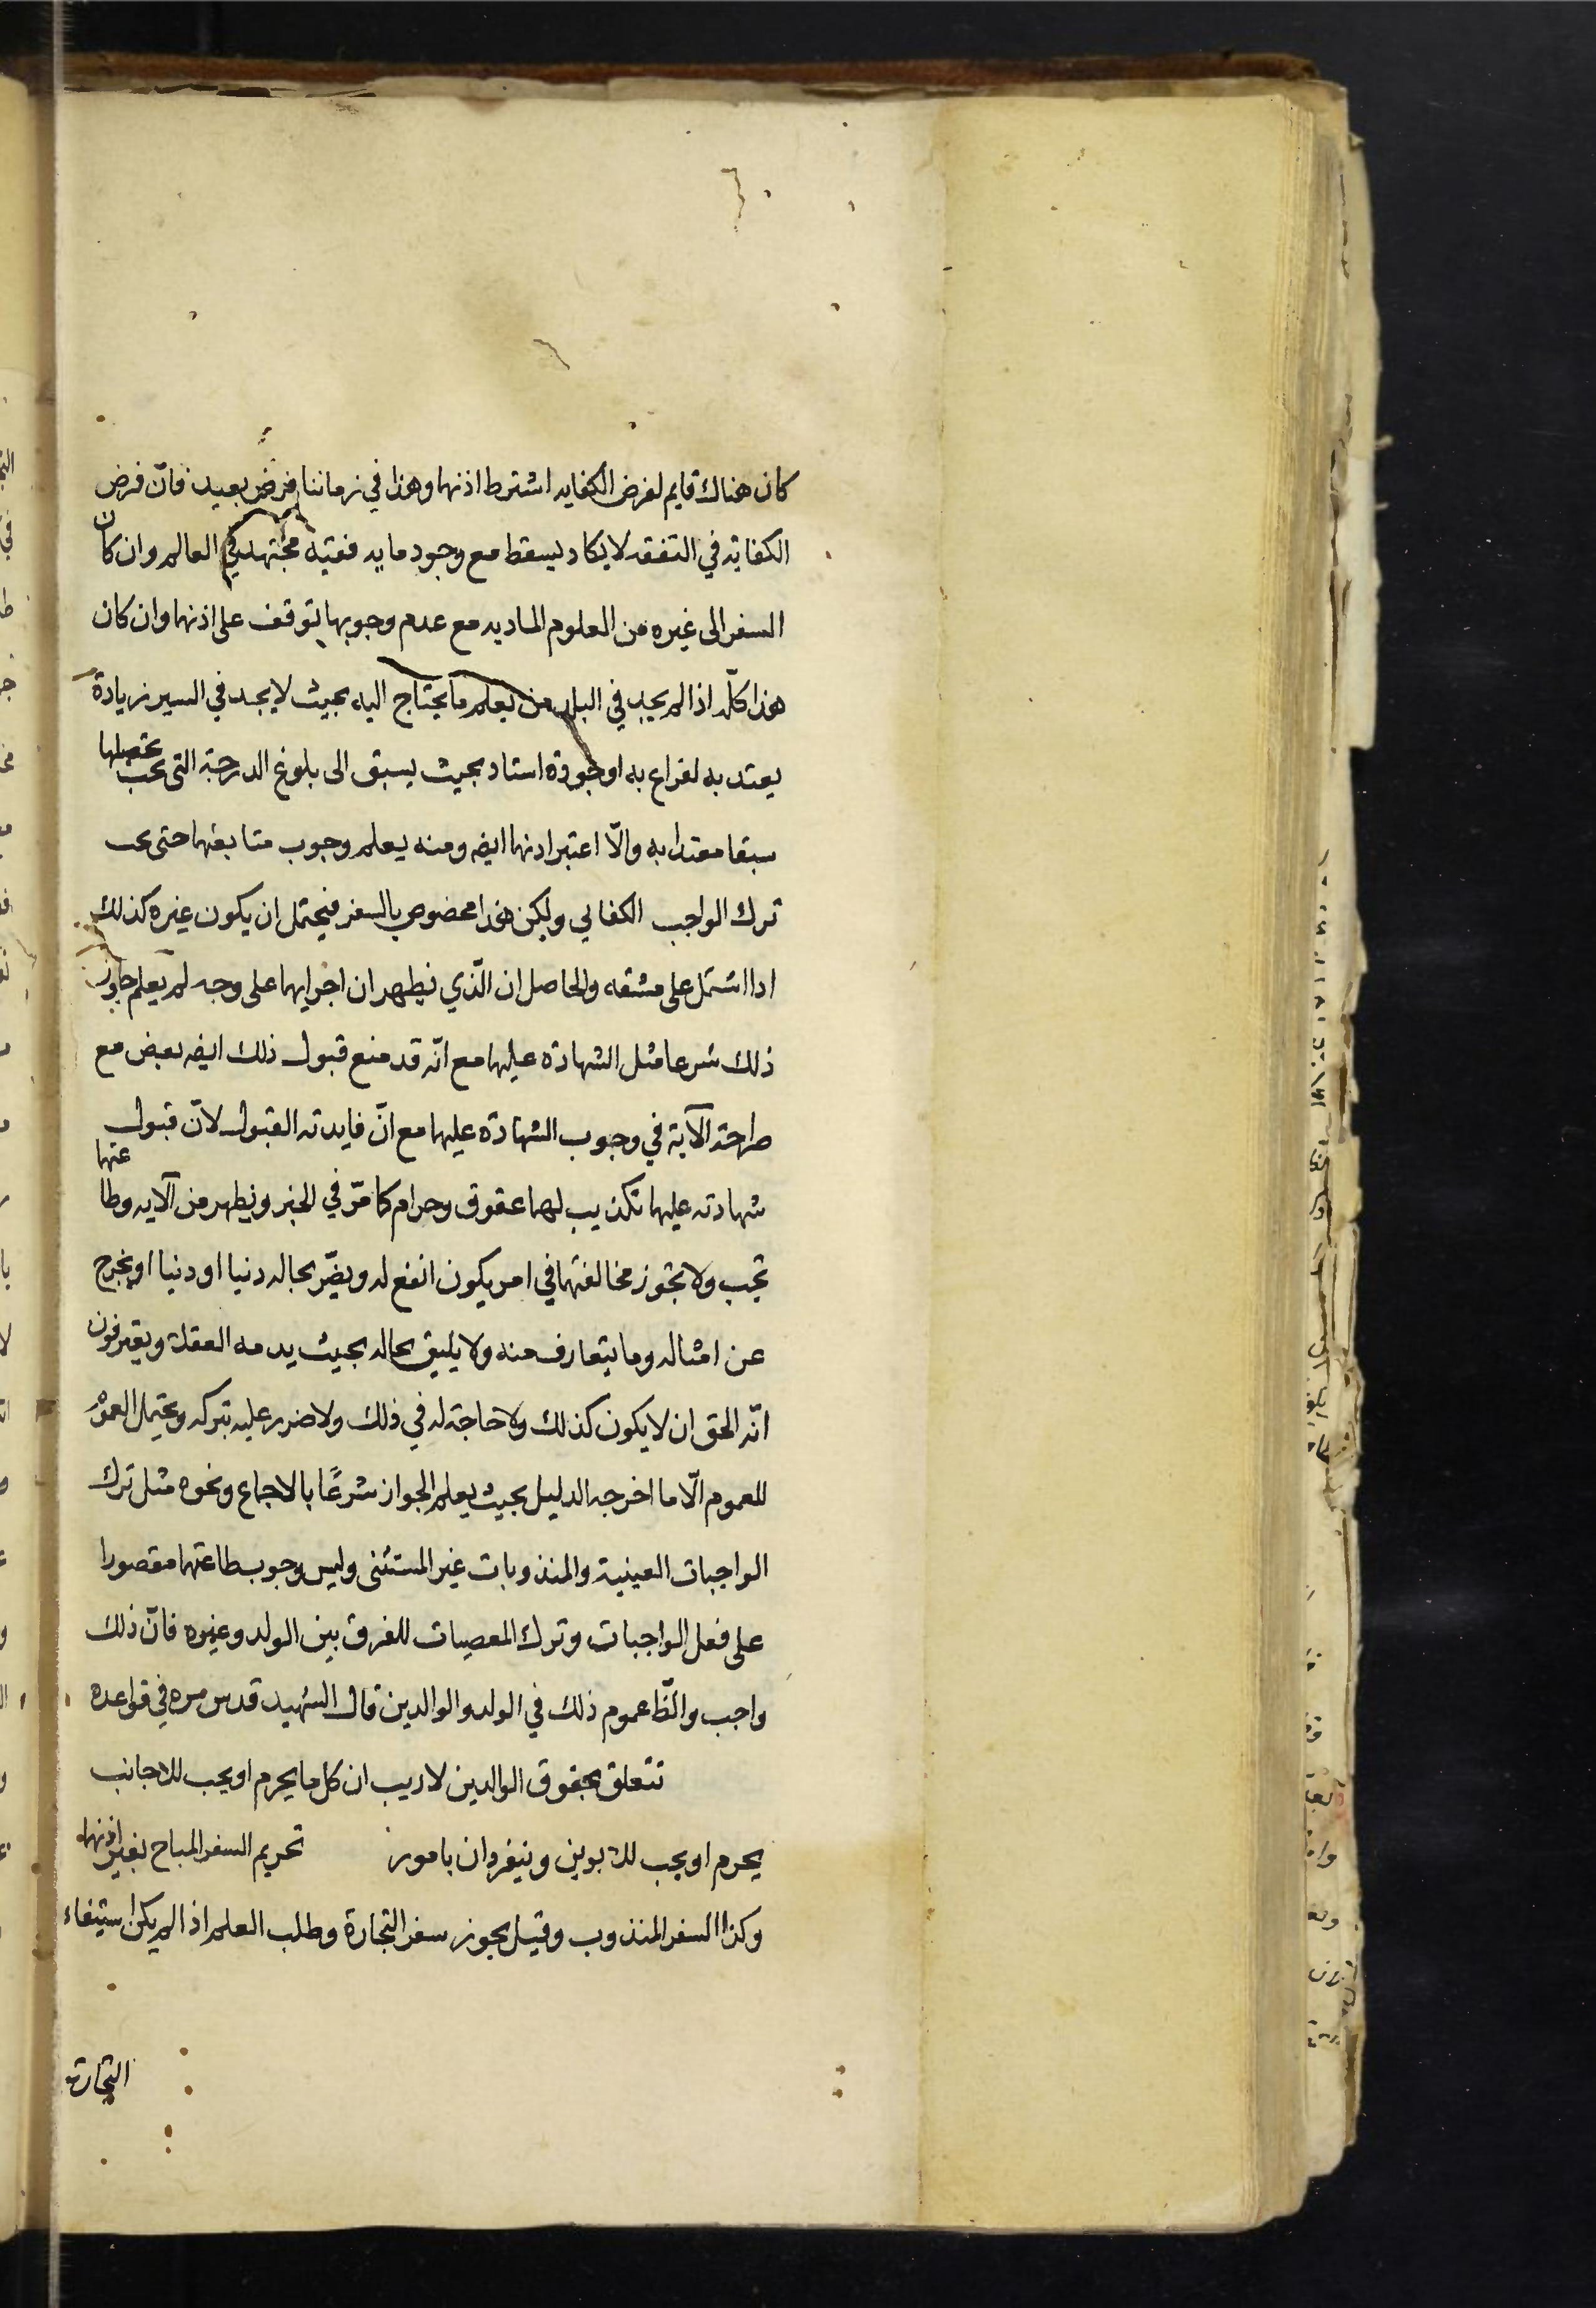 كان هناك قايم لفرض الكفايه اشترط اذنهما وهذا في زماننا فرض بعيد فانّ فرض
الكفاية في التفقه لا يكاد يسقط مع وجود مايه فقيه مجتهد في العالم وان كان
السفر الى غيره من العلوم الماديه مع عدم وجوبها توقف على اذنهما وان كان
هذا كلّه اذا لم يجد في البلد من يعلم ما يحتاج اليه بحيث لا يجد في السير زيادة
يعتد به لفراغ به او جودة استاد بحيث يسبق الى بلوغ الدرجة التى يجب تحصيلها
سبقا معتدا به والّا اعتبر اذنهما ايضه ومنه يعلم وجوب متابعتهما حتى يجب
ترك الواجب الكفايي ولكن هذا مخصوص بالسفر فيحتمل ان يكون غيره كذلك
اذا اشتمل على مشقه والحاصل ان الّذي يظهر ان اجرايهما على وجه لم يعلم جواز
ذلك شرعا مثل الشهادة عليهما مع انّه قد منع قبول ذلك ايضه بعض مع
صراحة الآية في وجوب الشهادة عليهما مع انّ فايدته القبول لانّ قبول
شهادته عليهما تكذيب لهما عقوق وحرام كما مرّ في الخبر ويظهر من الآيه وطاعتهما
تجب ولا تجوز مخالفتهما في امر يكون انفع له ويضّر بحاله دنيا او دنيا او يخرج
عن امثاله وما يتعارف منه ولا يليق بحاله بحيث يذمه العقلاء ويعترفون
انّه الحق ان لا يكون كذلك ولا حاجة له في ذلك ولا ضرر عليه بتركه ويحتمل العموم
للعموم الّا ما اخرجه الدليل بحيث يعلم الجواز شرعًا بالاجماع ونحوه مثل ترك
الواجبات العينية والمندوبات غير المستثنى وليس وجوب طاعتهما مقصورا
على فعل الواجبات وترك المعصيات للفرق بين الولد وغيره فانّ ذلك
واجب والظّ عموم ذلك في الولد والوالدين قال الشهيد قدس سره في قواعده
تتعلق بحقوق الوالدين لا ريب ان كل ما يحرم او يجب للاجانب
يحرم او يجب للابوين وينفردان بامور تحريم السفر المباح بغير اذنهما
وكذا السفر المندوب وقيل يجوز سفر التجارة وطلب العلم اذا لم يكن استيفاء
التجارة